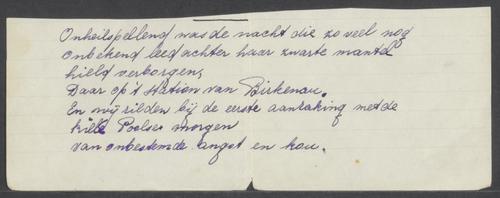 Onheilspellend was de nacht die zo veel nog
onbekend leed achter haar zwarte mantel
hield verborgen,
Daar op 't station van Birkenau.
En wij rilden bij de eerste aanraking met de
kille Poolse morgen
van onbestemde angst en kou.